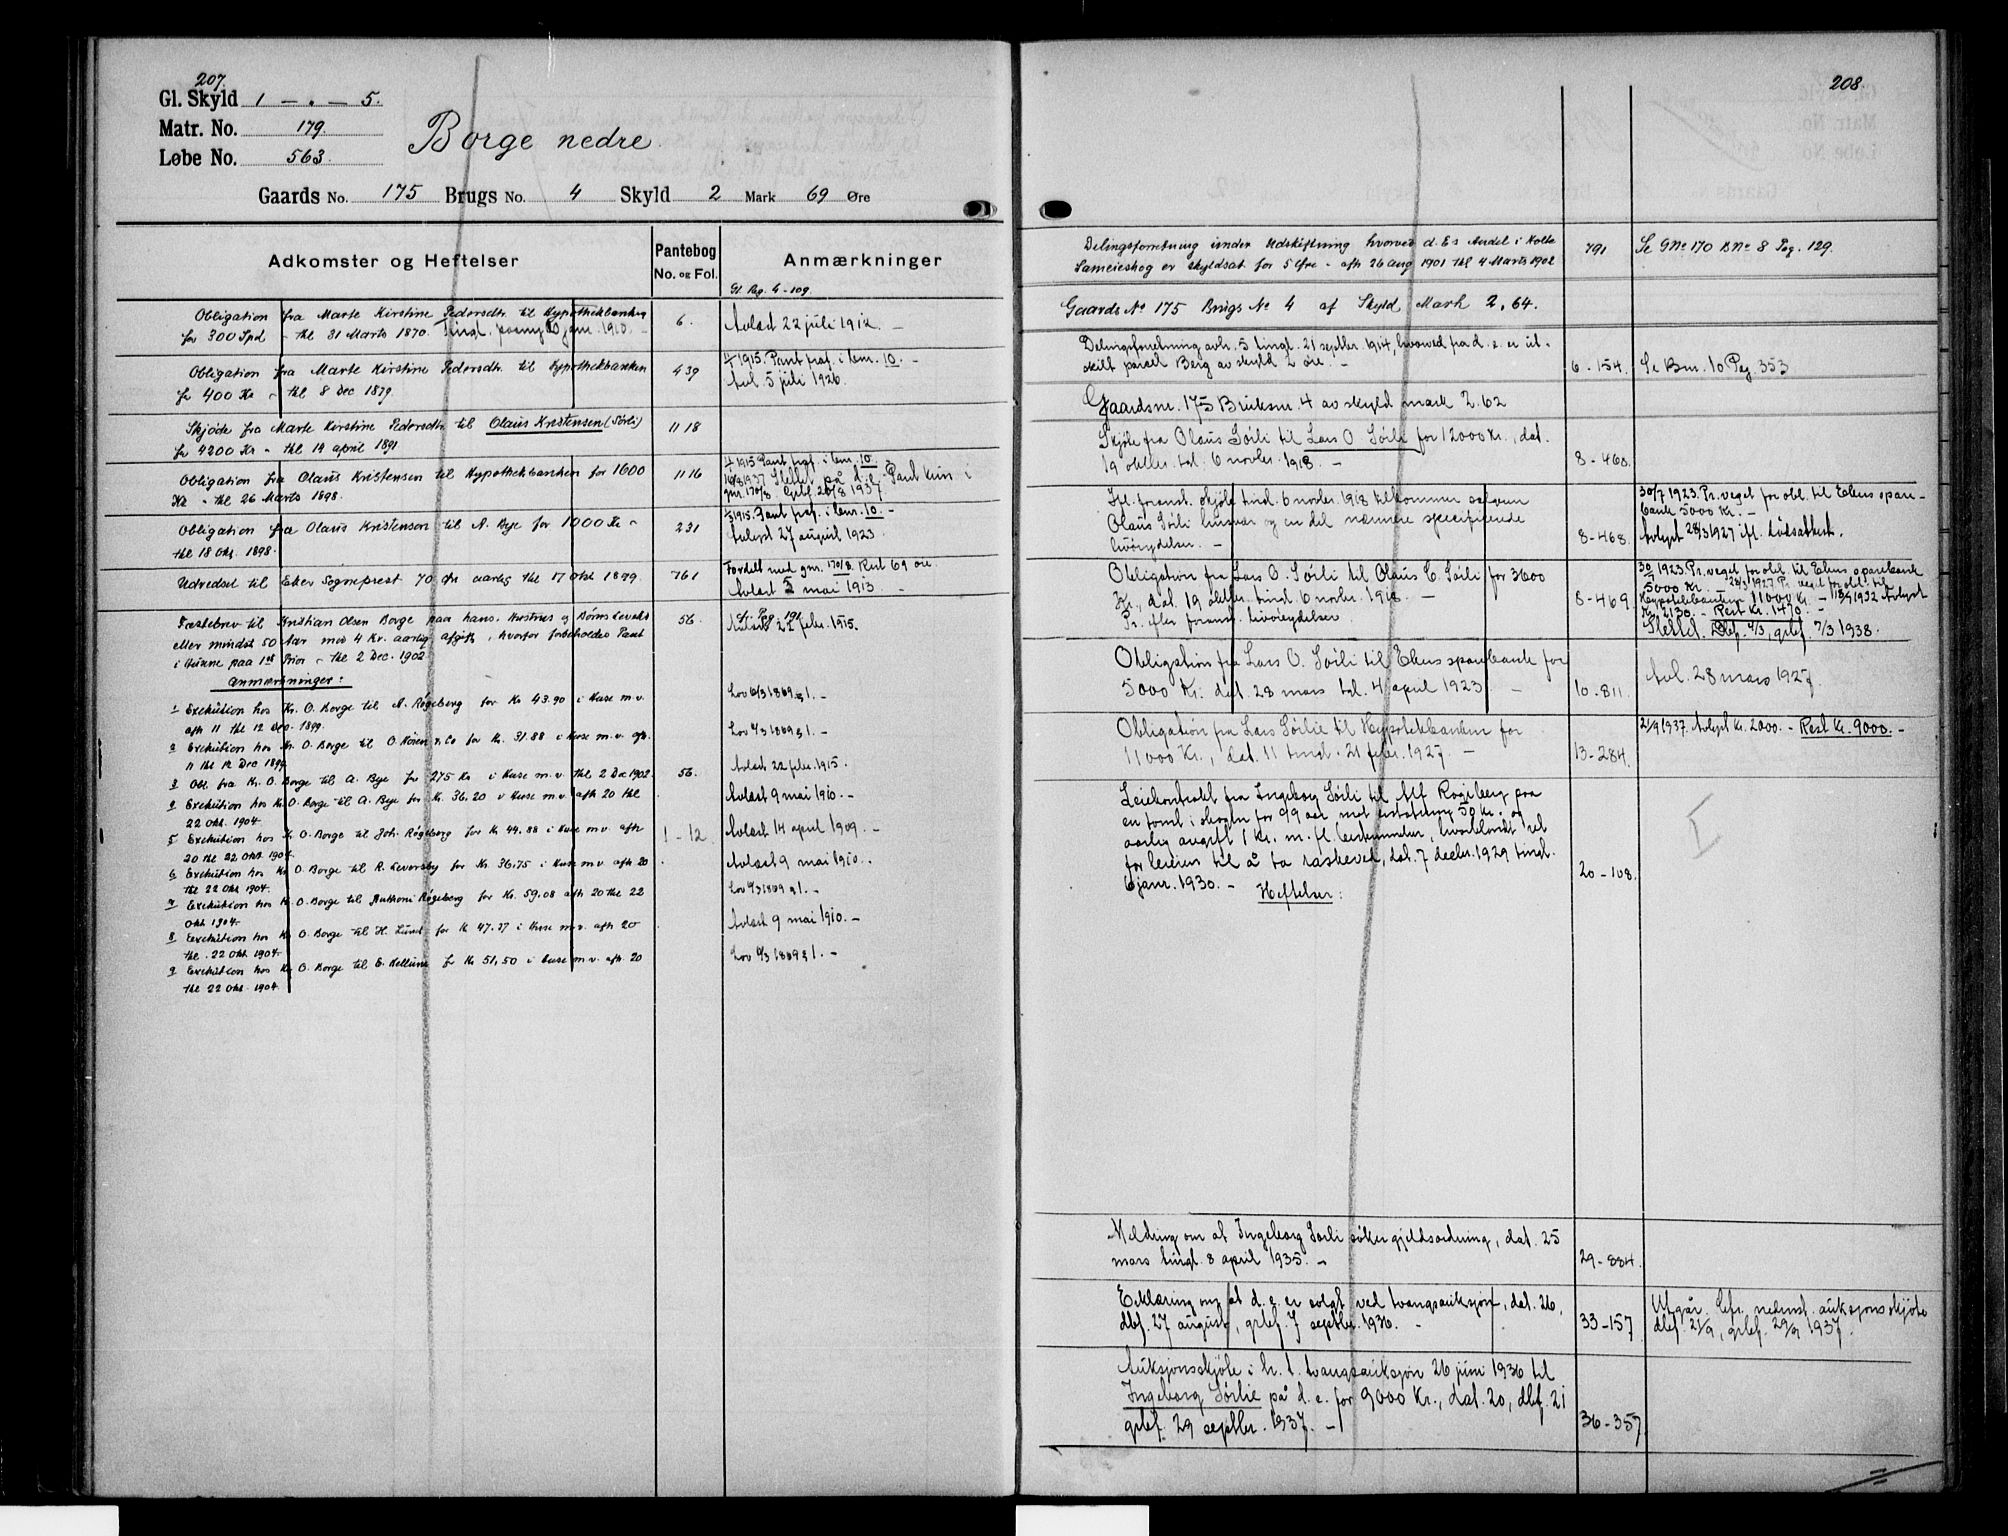 207.
Gl. Skyld 1 – . – 5.
Matr. No. 179.
Løbe No. 563.
Borge nedre.
Gaards No. 175 Brugs No. 4 Skyld 2 Mark 69 Øre
Adkomster og Heftelser
Pantebog
No. og Fol.
Anmærkninger
Gl. Pag. 4-109.
Obligation fra Marte Kirstine Pedersdtr. til Hypothekbanken
for 300 Spd – thl 31 Marts 1870. Tingl. paany 10 jan. 1910. –
6.
Avlæst 22 juli 1912. –
Obligation fra Marte Kirstine Pedersdtr. til Hypothekbanken
for 400 Kr – thl 8 Dec 1879.
439
1915. Pant fraf. i bnr. 10. –
Avl. 5 juli 1926.
Skjøde fra Marte Kirstine Pedersdtr. til Olaus Kristensen (Sørli)
for 4200 Kr – thl 14 april 1891
1118
Obligation fra Olaus Kristensen til Hypothekbanken for 1600
Kr – thl 26 Marts 1898.
1116
1915 Pant fraf. i bnr. 10.
1937 Slettet på d. e. Pant kun i
gnr. 170/8 Grbf. 20/8 1937
Obligation fra Olaus Kristensen til A. Bye for 1000 Kr –
thl 18 Okt. 1898.
231
1915. Pant fraf. i bnr. 10. –
Avlyst 27 august 1923.
Udredsel til Eker Sogneprest 70 Øre aarlig thl 17 Okt 1899.
761
Fordelt med gnr. 170/8. Rest 69 øre.
Avlæst 5 mai 1913. –
Festebrev til Kristian Olsen Borge paa hans, Kustrues og Børns Levetid
eller mindst 50 Aar mod 4 Kr. aarlig afgift, hvorfor forbeholdes Pant
i Husene paa 1st Prior – thl 2 Dec. 1902
56.
Avlæst 22 febr. 1915.
Anmærkninger:
1 Exekution hos Kr. O. Borge til A. Røgeberg for Kr 43.90 i Huse m.v.
afh 11 thl 12 Dec. 1899.
Lov 6/3 1869 § 1. –
2 Exekution hos Kr. O. Borge til O. Kosen & Co for Kr. 31.88 i Huse m.v. afh.
11 thl 12 Dec 1899
Lov 6/3 1869 § 1. –
3 Obl. fra Kr. O. Borge til A. Bye for 275 Kr i Huse m.v. thl 2 Dec 1902.
56.
Avlæst 22 febr. 1915.
4 Exekution hos Kr. O. Borge til A. Bye for Kr. 36.20 i Huse m.v. afh 20 thl
22 Okt. 1904.
Avlæst 9 mai 1910. –
5 Exekution hos Kr. O. Borge til Joh. Røgeberg for Kr 44.88 i Huse m.v. afh
20 thl 22 Okt. 1904.
1 – 12
Avlæst 14 april 1909. –
6 Exekution hos Kr. O. Borge til R. Leversby for Kr. 36,75 i Huse m.v. afh 20
thl 22 Okt. 1904.
Avlæst 9 mai 1910. –
7 Exekution hos Kr. O. Borge til Anthoni Røgeberg for Kr. 59.08 afh 20 thl 22
Okt 1904.
Lov 6/3 1869 § 1. –
8 Exekution hos Kr. O. Borge til H. Lund for Kr 47.27 i Huse m.v. afh 20
thl. 22 Okt. 1904.
Avlæst 9 mai 1910. –
9 Exekution hos Kr. O. Borge til E. Kellum for Kr 51,50 i Huse m.v. afh. 20
thl 22 Okt. 1904.
Lov 6/3 1869 § 1. –
208.
Delingsforretning under Udskiftning hvorved d. Es Andel i Kolbr
Sameieskog er skyldsat for 5 Øre – afh 26 aug 1901 thl 4 Marts 1902
791
Se GNo 170 BNo 8 Pag. 129.
Gaards No 175 Brugs No 4 af Skyld Mark 2.64.
Delingsforretning avh. 5 tingl. 21 septbr. 1914, hvorved fra d. e. er ut-
skilt parcel Berg av skyld 2 øre. –
6 - 154.
Se Bnr. 10 Pag. 353
Gaardsnr. 175 Bruksnr. 4 av skyld mark 2.62
Skjøte fra Olaus Sørli til Lars O. Sørli for 12000 kr., dat.
19 oktbr. tgl. 6 novbr. 1918. –
8 - 468.
Ifl. foranst. skjøte tingl. 6 novbr. 1918 tilkommer sælgeren
Olaus Sørli husvær og en del nærmere specificerede
livørydelser. –
8 - 468.
30/7 1923. Pr. veget for obl. til Ekers spare-
bank 5000 Kr. –
Avlyst 28/3 1927 ifl. dødsattest.
Obligation fra Lars O. Sørli til Olaus C. Sørli for 3600
Kr., dat. 19 oktbr. tingl. 6 novbr. 1918. –
Pr. efter foranst. livørydelser.
8 - 469.
1923. Pr. veget for obl. til Ekers sparebank
5000 Kr. 28/3 1927 Pr. veget for obl. til
Hypotekbanken 11000 Kr. – 1932 Avlyst
Kr. 2130. – Rest Kr. 1470. –
Slettet. Dbf. 4/3, grbf. 7/3 1938.
Obligation fra Lars O. Sørli til Ekers sparebank for
5000 Kr. dat. 28 mars tgl. 4 april 1923 –
10 - 811.
Avl. 28 mars 1927.
Obligation fra Lars Sørlie til Hypotekbanken for
11000 Kr., dat. 11 tingl. 21 febr. 1927. –
13 - 284.
21/9 1937. Avlyst Kr. 2000. – Rest Kr. 9000. –
Leiekontrakt fra Ingeborg Sørli til Alf Røgeberg paa
en tomt i skogen for 99 aar mot erstatning 50 kr. og
aarlig avgift 1 Kr. m. fl. bestemmelser, hvoriblandt ret
for leieren til å ta raskeved, dat. 7 decbr. 1929 tingl.
6 janr. 1930. –
20 - 108.
I
Heftelser:
Meldning om at Ingeborg Sørli søker gjeldsordning, dat. 25
mars tingl. 8 april 1935. –
29 - 884.
Erklæring om at d. e. er solgt ved tvangsauksjon, dat. 26,
dbf. 27 august, grbf. 7 septbr. 1936. –
33 - 157
Utgår. Cfr. nedenst. auksjonsskjøte
dbf. 21/9, grbf. 29/9 1937.
Auksjonsskjøte i h. t. tvangsauksjon 26 juni 1936 til
Ingeborg Sørlie på d. e. for 9000 Kr., dat. 20, dbf. 21
grbf. 29 septbr. 1937. –
36 - 357